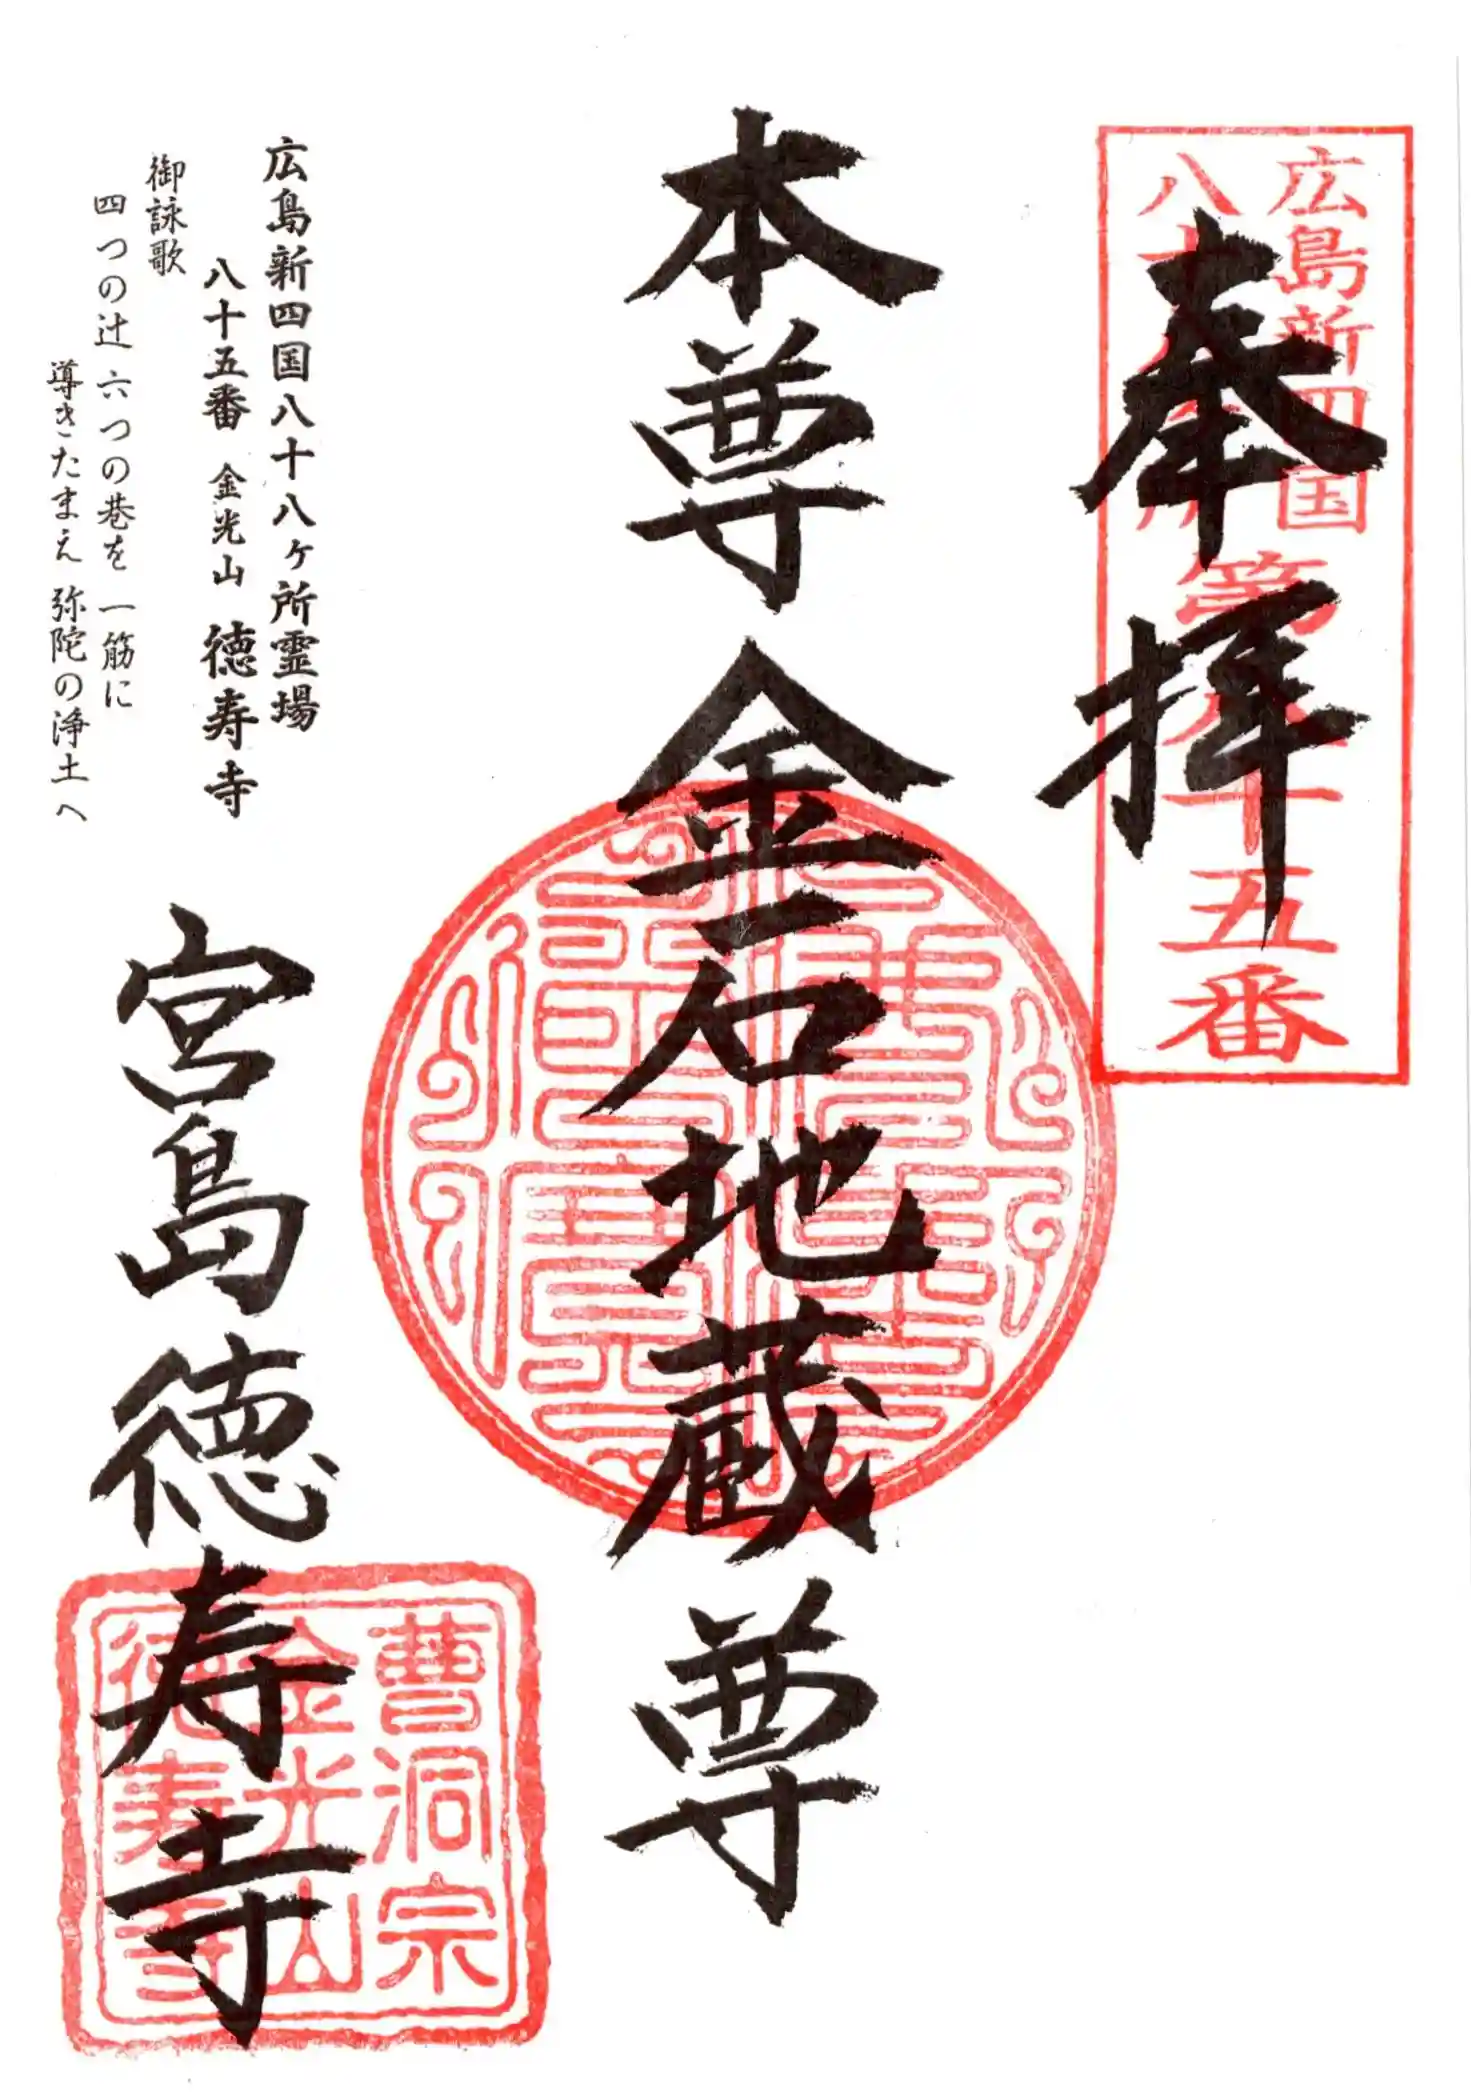 広島新四国
八十八ヶ所
第八十五番
奉拝
本尊 金石地蔵尊
宮島徳寿寺
曹洞宗
金光山
徳寿寺
広島新四国八十八ヶ所霊場
八十五番 金光山 徳寿寺
御詠歌
四つの辻 六つの巷を 一筋に
導きたまえ 弥陀の浄土へ